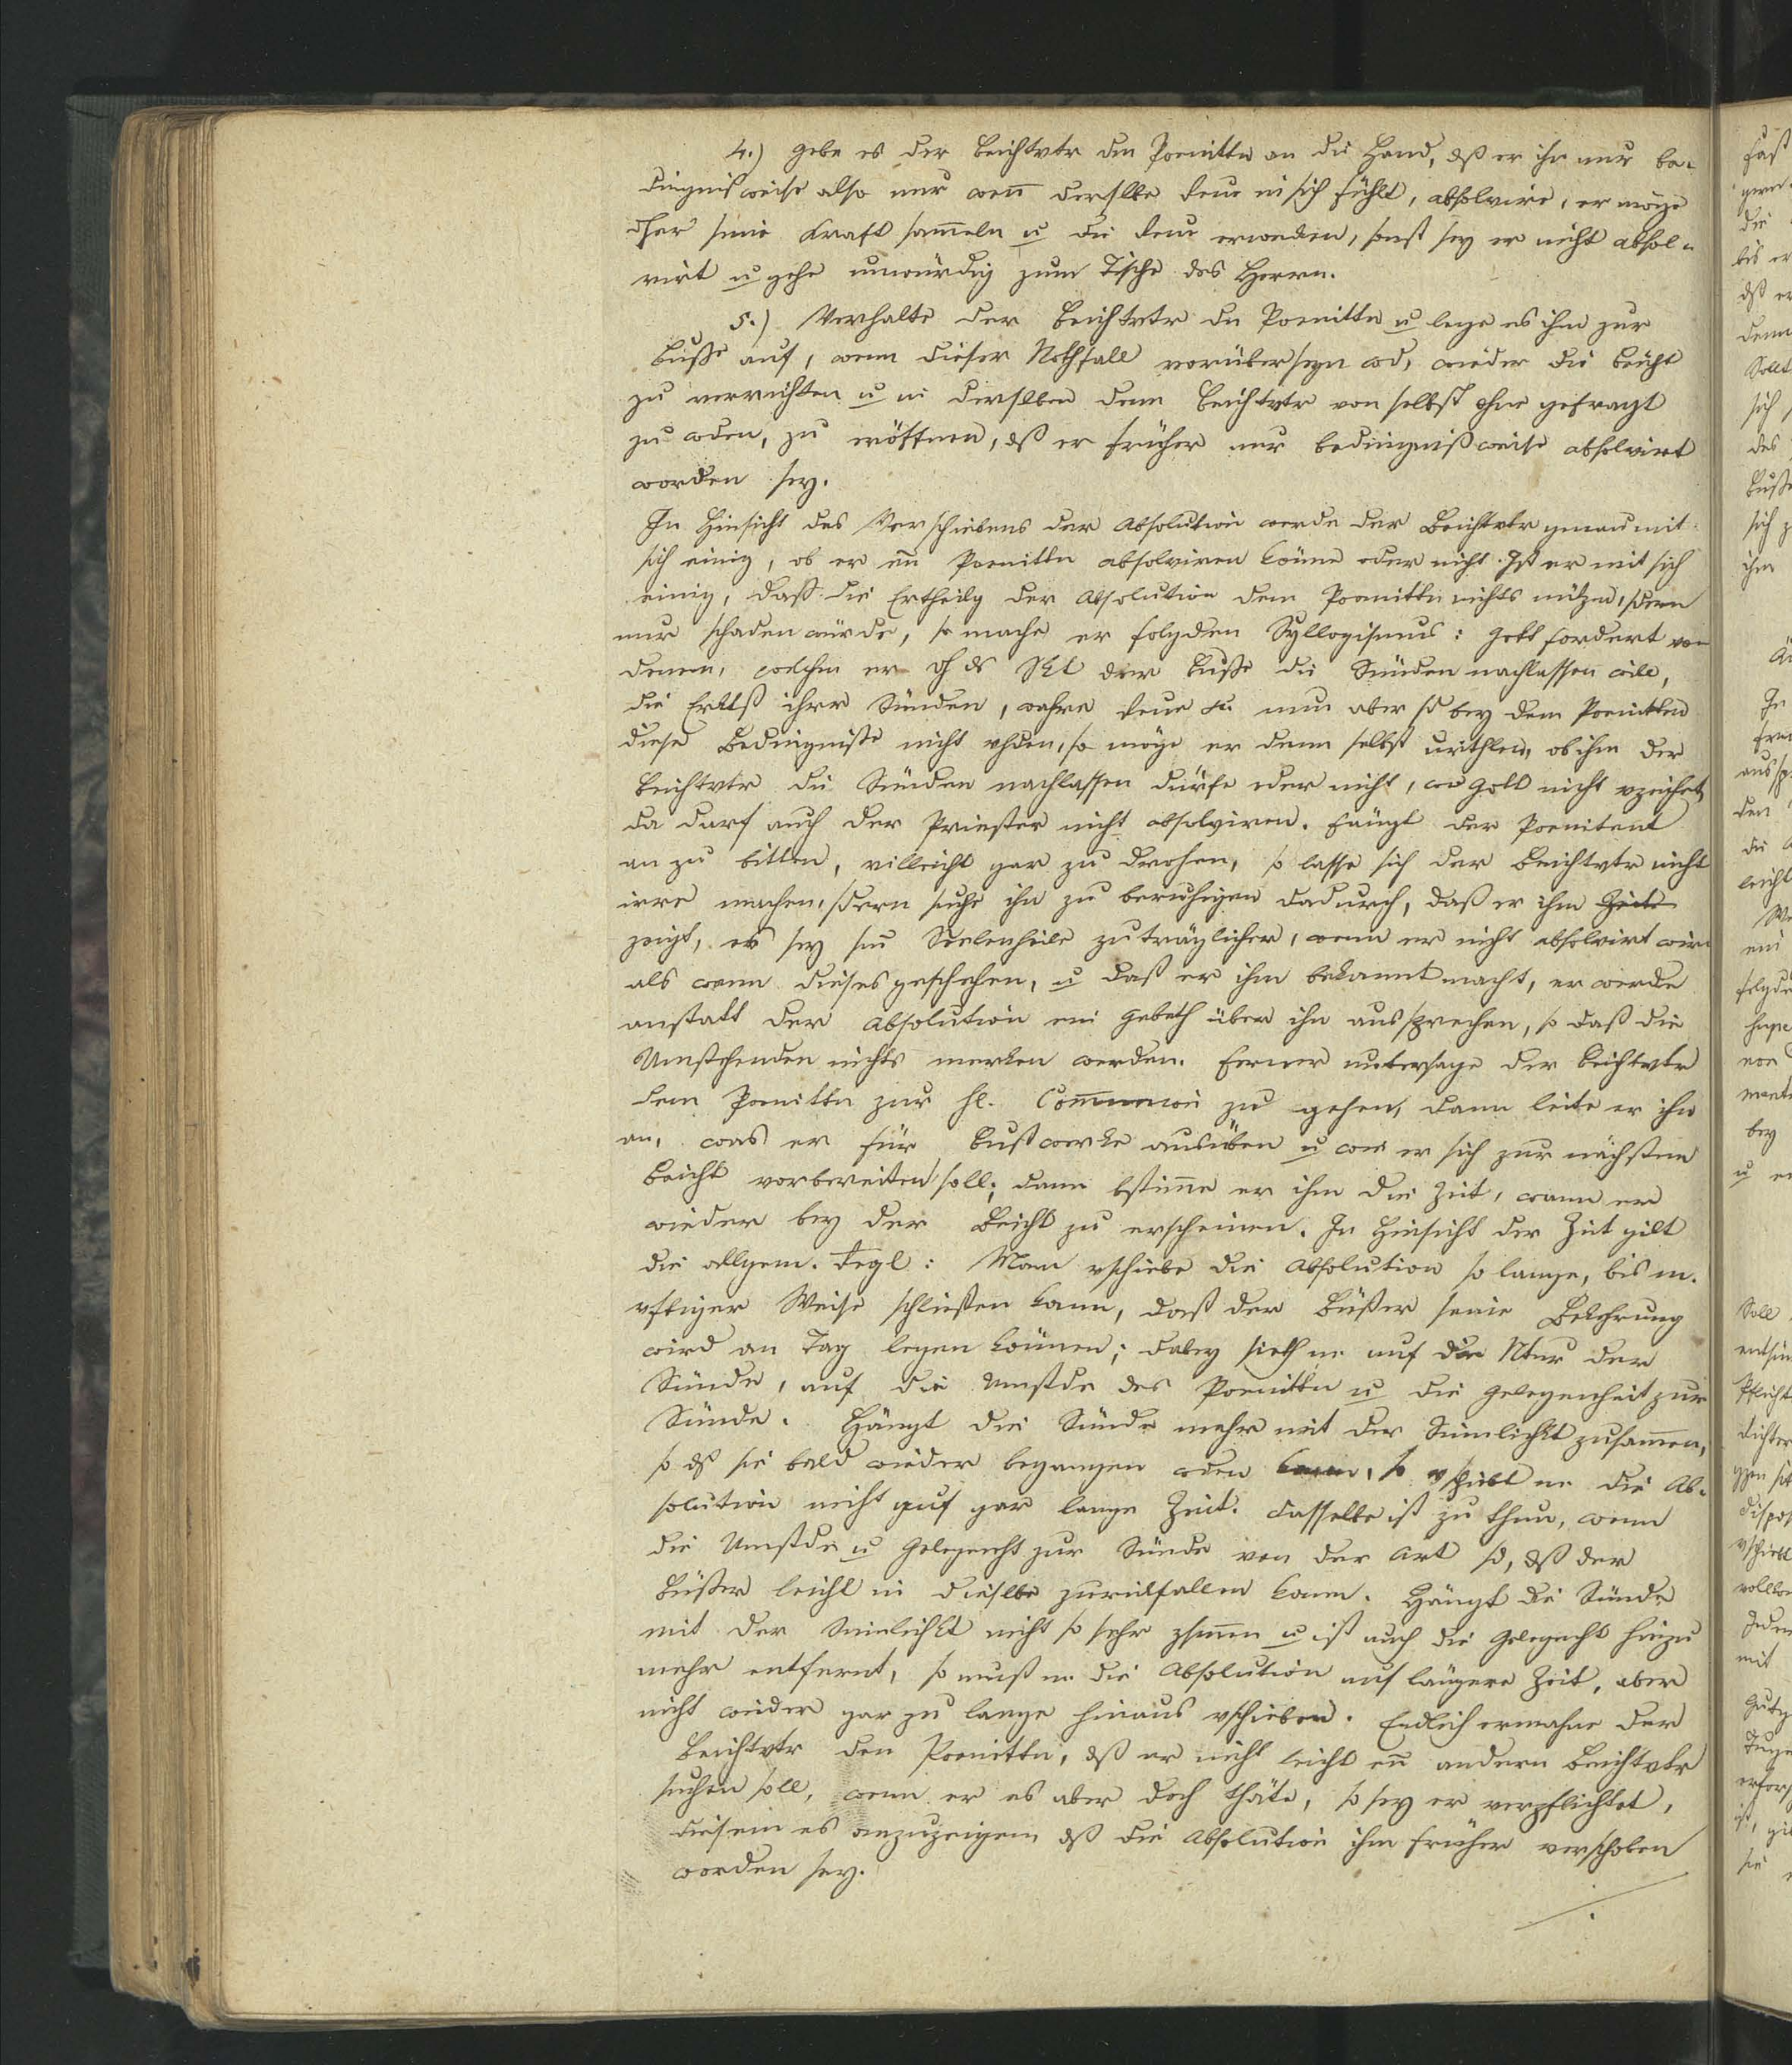 4.) Gebe es der Beichtvtr dm Poenittn an die Hand, dß er ihn nur be-
dingnißweise also nur weñ derslbe Reue in sich fühlt, absolvire, er möge
dher seine Kraft sam̃eln u die Reue erwecken, sonst sey er nicht absol-
virt u gehe unwürdig zum Tische des Herrn.
5.) Verhalte der Beichtvtr dn Poenittn u lege es ihm zur
Buße auf, wenn dieser Nothfall vorüberseyn wd, wieder die Beicht
zu verrichten u in derslben dem Beichtvtr von selbst ohne gefragt
zu wden, zu eröffnen, dß er früher nur bedingnißweise absolvirt
worden sey.
In Hinsicht des Verschiebens der Absolution werde der Beichtvtr genau mit
sich einig, ob er eñ Poenittn absolviren könne oder nicht. Ist er mit sich
einig, dass die Ertheilg der Absolution dem Poenittn nichts nützen, sdern
nur schaden würde, so mache er folgden Syllogismus: Gott fordert von
denen, welchen er dh ds Skt der Buße die Sünden nachlassen will,
die Erktß ihrer Sünden, wahre Reue etc. nun aber sd bey dem Poenitten
diese Bedingnisse nicht vhden, so möge er denn selbst urthlen, ob ihm der
Beichtvtr die Sünden nachlassen dürfe oder nicht, wo Gott nicht vzeihet,
da darf auch der Priester nicht absolviren. Fängt der Poenitent
an zu bitten, villeicht gar zu drohen, so lasse sich der Beichtvtr nicht
irre machen, sdern suche ihn zu beruhigen dadurch, daß er ihm Zeite
zeigt, es sey sm̃ Seelenheile zuträglicher, wenn er nicht absolvirt wird
als wenn dieses geschehen, u daß er ihm bekannt macht, er werde
anstatt der Absolution ein Gebeth über ihn aussprechen, so daß die
Umstehenden nichts merken werden. Ferner untersage der Beichtvtr
dem Poenittn zur hl. Com̃union zu gehen, dann leite er ihn
an, was er für Bußwerke ausüben u wie er sich zur nächsten
Beicht vorbereiten soll; dann bstim̃e er ihm die Zeit, wann er
wieder bey der Beicht zu erscheinen. In Hinsicht der Zeit gilt
die allgem. Regl: Man vschiebe die Absolution so lange, bis m.
vftiger Weise schließen kann, daß der Büßer seine Bekehrung
wird an Tag legen können; dabey sieth m. auf die Ntur der
Sünde, auf die Umstde des Poenittn u die Gelegenheit zur
Sünde. Hängt die Sünde mehr mit der Sinnlichkt zusam̃en,
so dß sie bald wieder begangen wden kann, so vschiebt m. die Ab-
solution nicht auf gar lange Zeit. Dasselbe ist zu thun, wenn
die Umstde u Gelegenht zur Sünde von der Art sd, dß der
Büßer leicht in dieslbe zurückfallen kann. Hängt die Sünde
mit der Sinnlichkt nicht so sehr zsam̃en u ist auch die Gelegenht hiezu
mehr entfernt, so muß m. die Absolution auf längere Zeit, aber
nicht wieder gar zu lange hinaus vschieben. Endlich ermahne der
Beichtvtr den Poenittn, dß er nicht leicht eñ andern Beichtvtr
suchen soll, wenn er es aber doch thäte, so sey er verpflichtet,
diesem es anzuzeigen dß die Absolution ihm früher verschoben
worden sey.